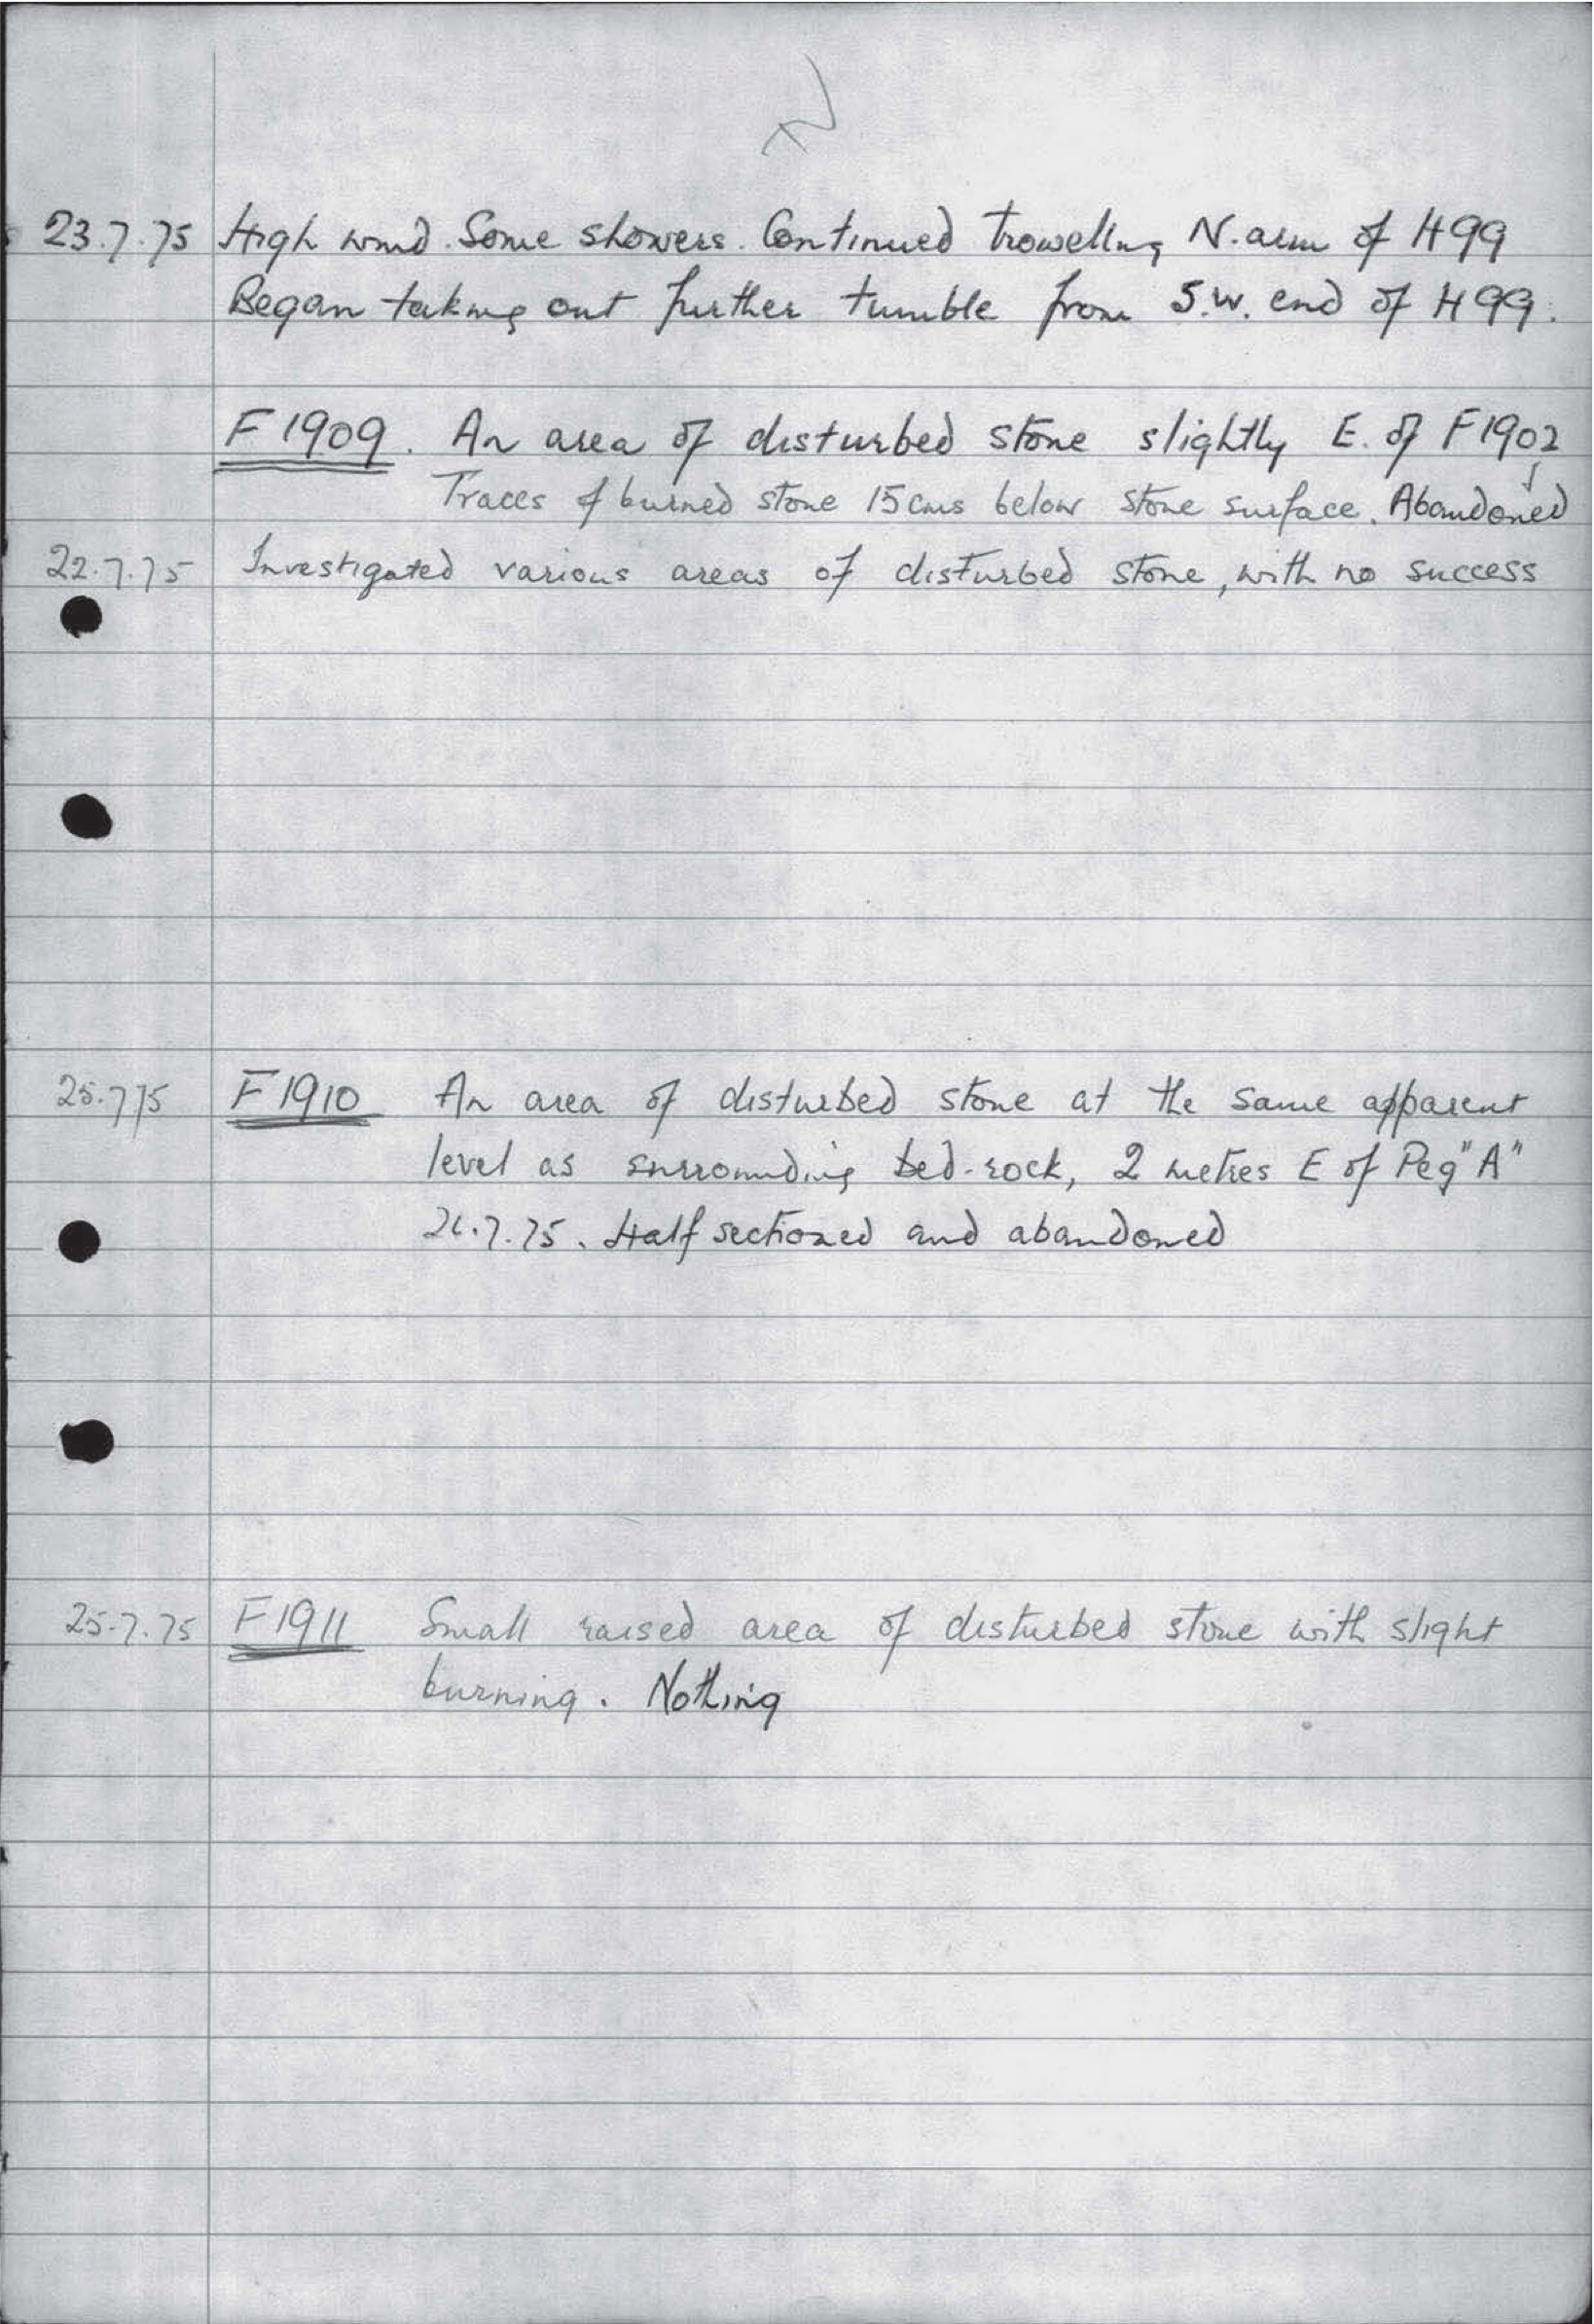 23.7.75 High wind. Some showers. Continued trowelling N. arm of H99
Began taking out further tumble from S.W. end of H99.
F1909. An area of disturbed stone slightly E. of F1902
Traces of burned stone 15cms below stone surface. Abandoned
22.7.75 Investigated various areas of disturbed stone, with no success
25.7.75 F1910 An area of disturbed stone at the same apparent
level as surrounding bed-rock, 2 metres E of Peg "A"
26.7.75. Half sectioned and abandoned
25.7.75 F1911 Small raised area of disturbed stone with slight
burning. Nothing